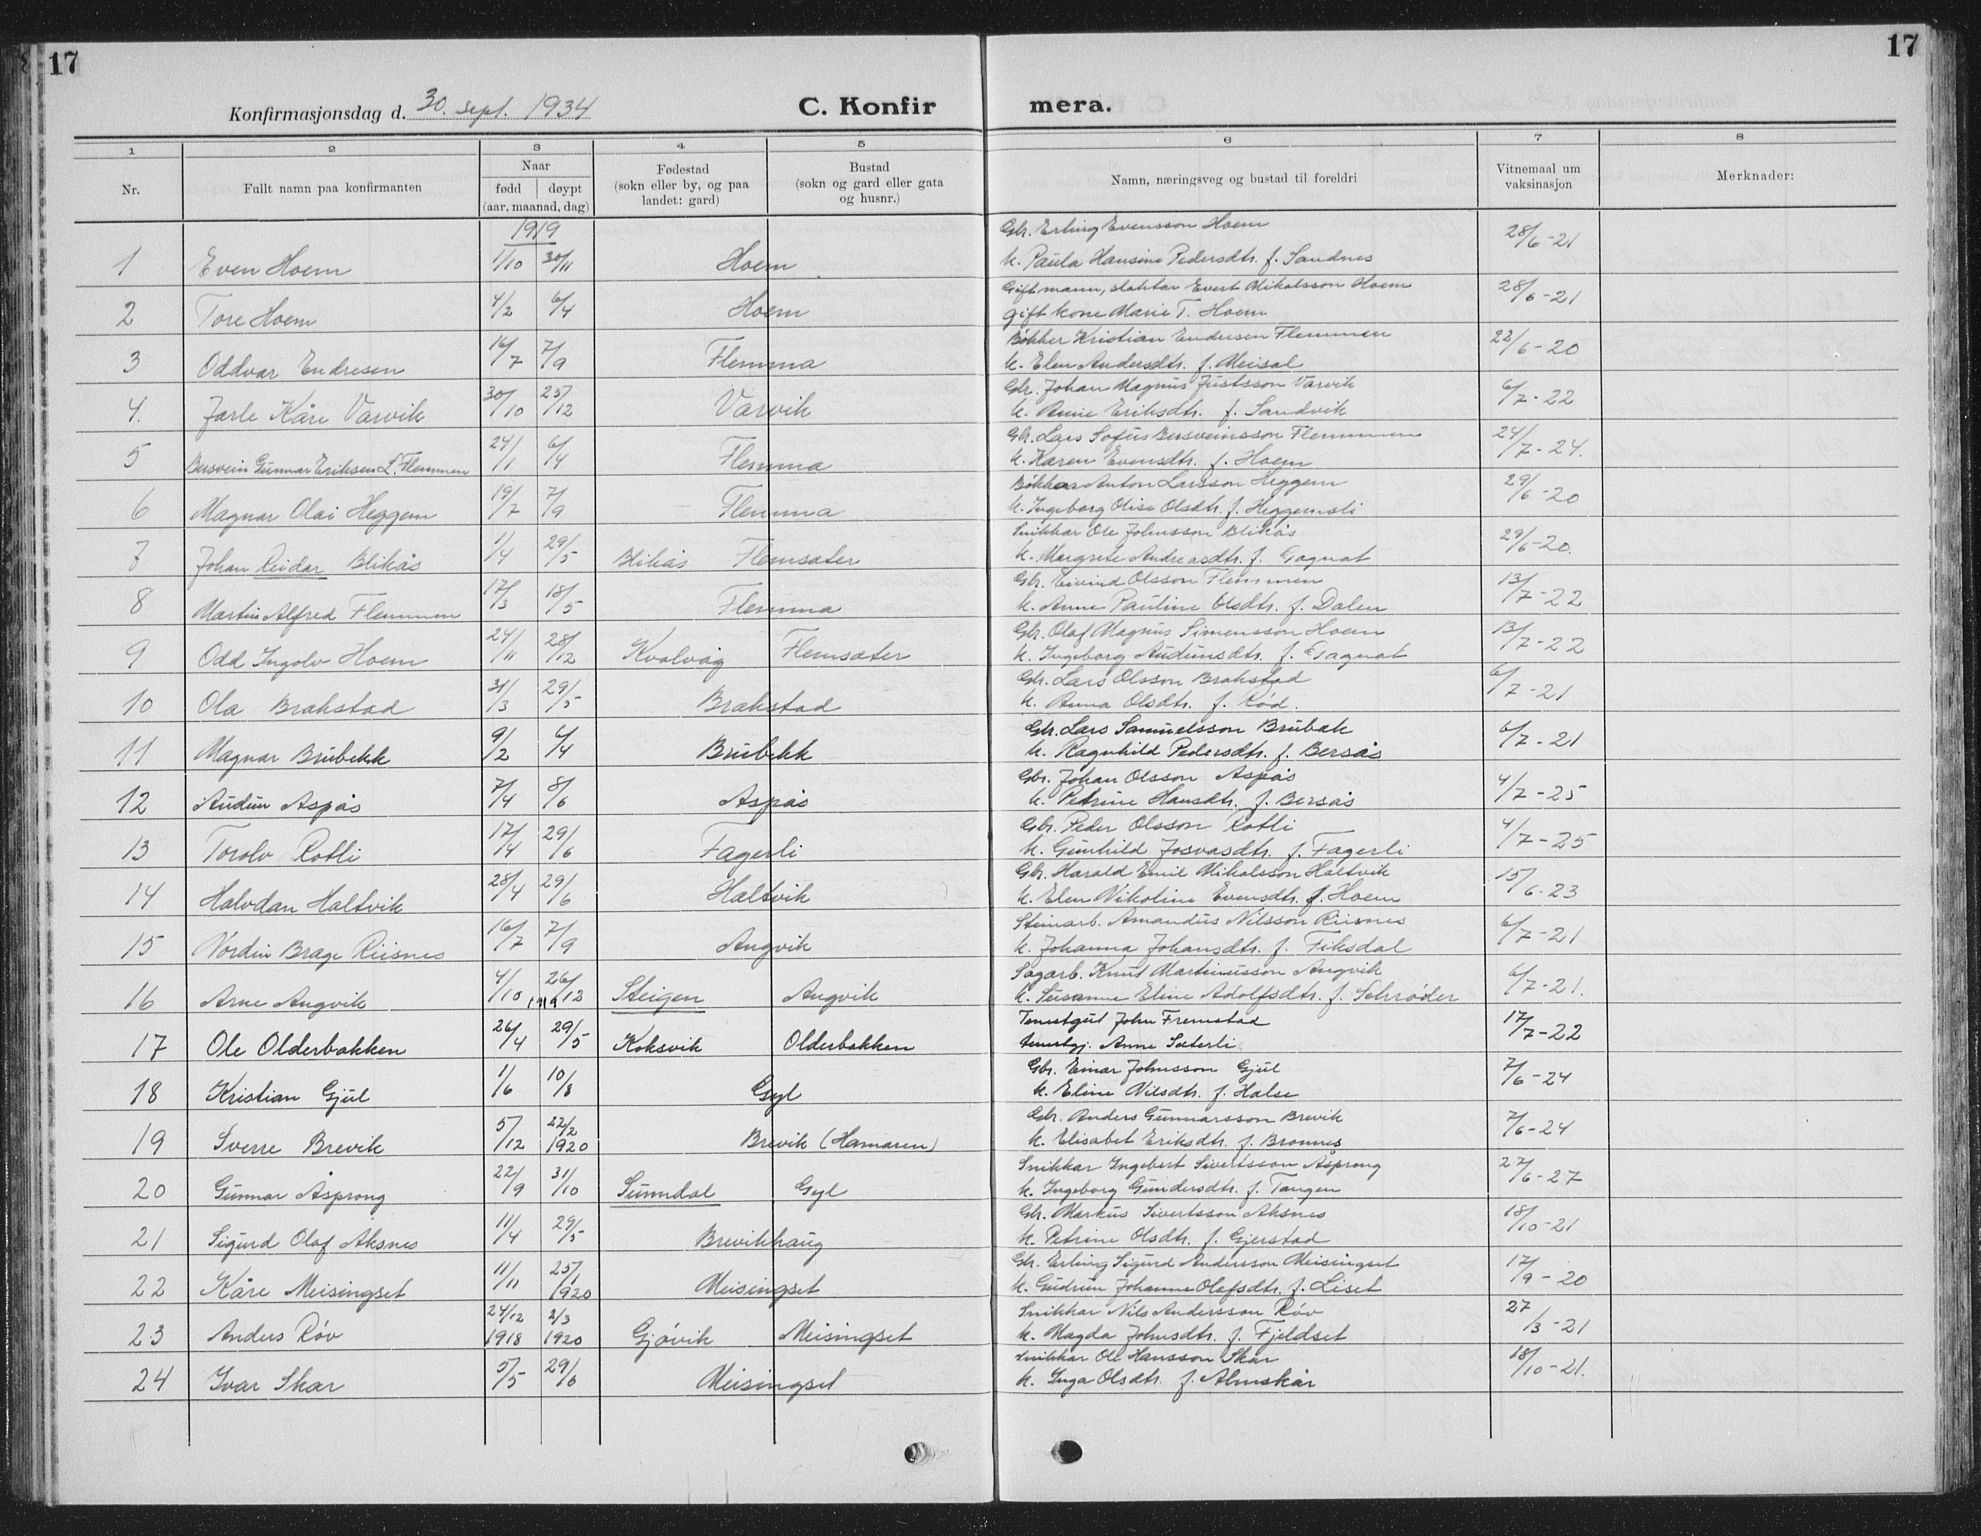 17
17
Konfirmasjonsdag d. 30. sept. 1934
C. Konfir mera.
1 2 3 4 5 6 7 8
Nr. Fullt namn paa konfirmanten Naar fødd døypt (aar, maanad, dag) Fødestad (sokn eller by, og paa landet: gard) Bustad (sokn og gard eller gata og husnr.) Namn, næringsveg og bustad til foreldri Vitnemaal um vaksinasjon Merknader:
1919
Gbr. Erling Evensson Hoem
1 Even Hoem 1/10 30/11 Hoem k. Paula Hansine Pedersdtr. f. Sandnes 28/6-21
Gift mann, slaktar Evert Mikalsson Hoem
2 Tore Hoem 4/2 6/4 Hoem gift kone Marie T. Hoem 28/6-21
Bøkker Kristian Endresen Flemmen
3 Oddvar Endresen 16/7 7/9 Flemma k. Elen Andersdtr. f. Meisal 22/6-20
Gbr. Johan Magnus Justsson Varvik
4. Jarle Kåre Varvik 30/10 25/12 Varvik k. Anne Eriksdtr. f. Sandvik 6/7-22
Gbr. Lars Sofus Bersveinsson Flemmen
5 Bersvein Gunnar Eriksen L. Flemmen 24/1 6/4 Flemma k. Karen Evensdtr. f. Hoem 24/7-24.
Bøkker Anton Larsson Heggem
6 Magnar Olai Heggem 19/7 7/9 Flemma k. Ingeborg Olise Olsdtr. f. Heggemsli 29/6-20
Snikkar Ole Johnsson Blikås
7 Johan Reidar Blikås 1/4 29/5 Blikås Flemsæter k. Margrete Andreasdtr. f. Gagnat 29/6-20.
Gbr. Eivind Olsson Flemmen
8 Martin Alfred Flemmen 17/3 18/5 Flemma k. Anne Pauline Olsdtr. f. Dalen 13/7-22
Gbr. Olaf Magnus Simensson Hoem
9 Odd Ingolv Hoem 24/11 28/12 Kvalvåg Flemsæter k. Ingeborg Audunsdtr. f. Gagnat 13/7-22
Gbr. Lars Olsson Brakstad
10 Ola Brakstad 31/3 29/5 Brakstad k. Anna Olsdtr. f. Rød. 6/7-21
Gbr. Lars Samuelsson Brubæk
11 Magnar Brubekk 9/2 6/4 Brubekk k. Ragnhild Pedersdtr. f. Bersås 6/7-21
Gbr. Johan Olsson Aspås
12 Audun Aspås 7/4 8/6 Aspås k. Petrine Hansdtr. f. Bersås 4/7-25
Gbr. Peder Olsson Rotli
13 Torolv Rotli 17/4 29/6 Fagerli k. Gunhild Josvasdtr. f. Fagerli 4/7-25
Gbr. Harald Emil Mikalsson Haltvik
14 Halvdan Haltvik 28/4 29/6 Haltvik k. Elen Nikoline Evensdtr. f. Hoem 15/6-23
Steinarb. Amandus Nilsson Riisnes
15 Nordin Brage Riisnes 16/7 7/9 Angvik k. Johanna Johansdtr. f. Fiksdal 6/7-21
Sagarb. Knut Martinusson Angvik
16 Arne Angvik 4/10 26/12 1919 Steigen Angvik k. Susanne Eline Adolfsdtr. f. Schrøder 6/7-21.
Tenestgut John Fremstad
17 Ole Olderbakken 26/4 29/5 Koksvik Olderbakken tenestgj. Anne Sæterli 17/7-22
Gbr. Einar Johnsson Gjul
18 Kristian Gjul 1/6 10/8 Gyl k. Eline Nilsdtr. f. Halse 7/6-24
Gbr. Anders Gunnarsson Brevik
19 Sverre Brevik 5/12 22/2 1920 Brevik (Hamaren) k. Elisabet Eriksdtr. f. Bronnes 7/6-24
Snikkar Ingebert Sivertsson Åsprong
20 Gunnar Åsprong 22/9 31/10 Sunndal Gyl k. Ingeborg Gundersdtr. f. Tangen 27/6-27
Gbr. Markus Sivertsson Aksnes
21 Sigurd Olaf Aksnes 11/4 29/5 Brevikhaug k. Petrine Olsdtr. f. Gjerstad 18/10-21
Gbr. Erling Sigurd Andersson Meisingset
22 Kåre Meisingset 11/11 25/1 1920 Meisingset k. Gudrun Johanne Olafsdtr. f. Liset 17/9-20
Snikkar Nils Andersson Røv
23 Anders Røv 24/12 1918 2/3 1920 Gjøvik Meisingset k. Magda Johnsdtr. f. Fjeldset 27/3-21
Snikkar Ole Hansson Skar
24 Ivar Skar 5/5 29/6 Meisingset k. Inga Olsdtr. f. Almskår 18/10-21.